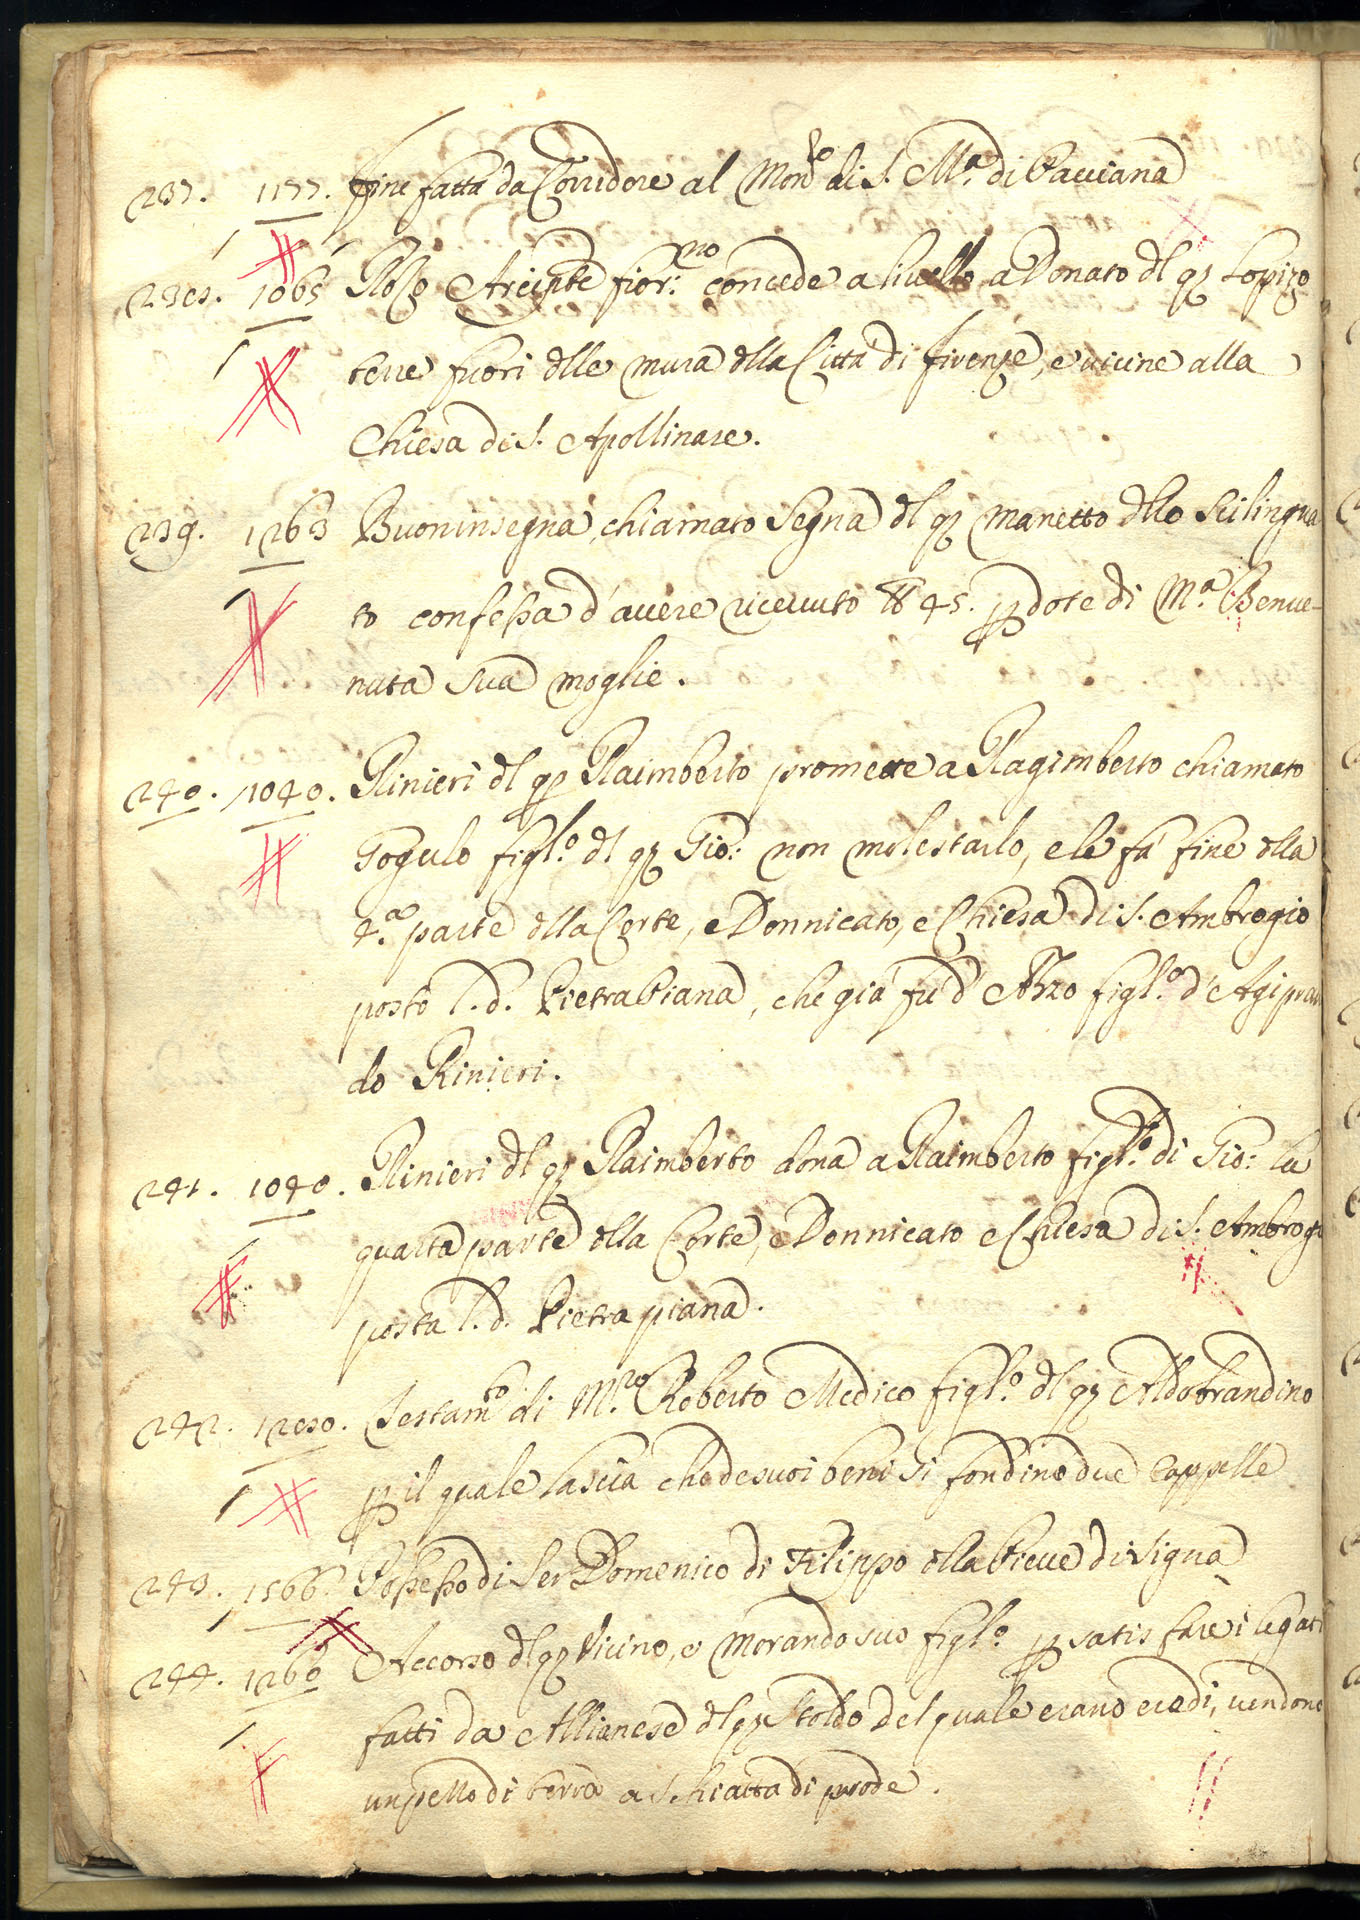 237. 1177. fine fatta da Corridore al Mon.ro di S. M.a di Paciana
238. 1065 Rolo Arcipte fior.no concede a livello a Donato dl q3 Lopizo
terre fuori dlle mura dlla Città di firenze, e vicine alla
Chiesa di S. Apollinare.
239. 1263 Buoninsegna, chiamato Segna dl q3 Manetto dllo Scilingua
to confessa d'avere ricevuto ℔ 45. p dote di M.a Benve-
nuta sua moglie.
240. 1040. Rinieri dl q3 Raimberto promette a Ragimberto chiamato
Gogulo figl.o dl q3 Gio: non molestarlo, e le fà fine dlla
4.a parte dlla Corte, e Donnicato, e Chiesa di S. Ambrogio
posto l. d. Pietrapiana, che già fù d' Azzo figl.o d' Agipran
do Rinieri.
241. 1040. Rinieri dl q3 Raimberto dona a Raimberto figl.o di Gio: la
quarta parte dlla Corte, e Donnicato e Chiesa di S. Ambrogi
posta l. d. Pietra piana.
242. 1280. Testam.to di M.ro Roberto Medico figl.o dl q3 Aldobrandino
p il quale lascia che de suoi beni si fondino due Cappelle
243. 1566. Possesso di Ser Domenico di Filippo dlla Pieve di Signa
244. 1260 Accorso dl q3 Vicino, e Morando suo figl.o p satisfare i legati
fatti da Allianese dl q3 Stoldo del quale erano eredi, vendono
un pezzo di terra a Schiatta di prode.